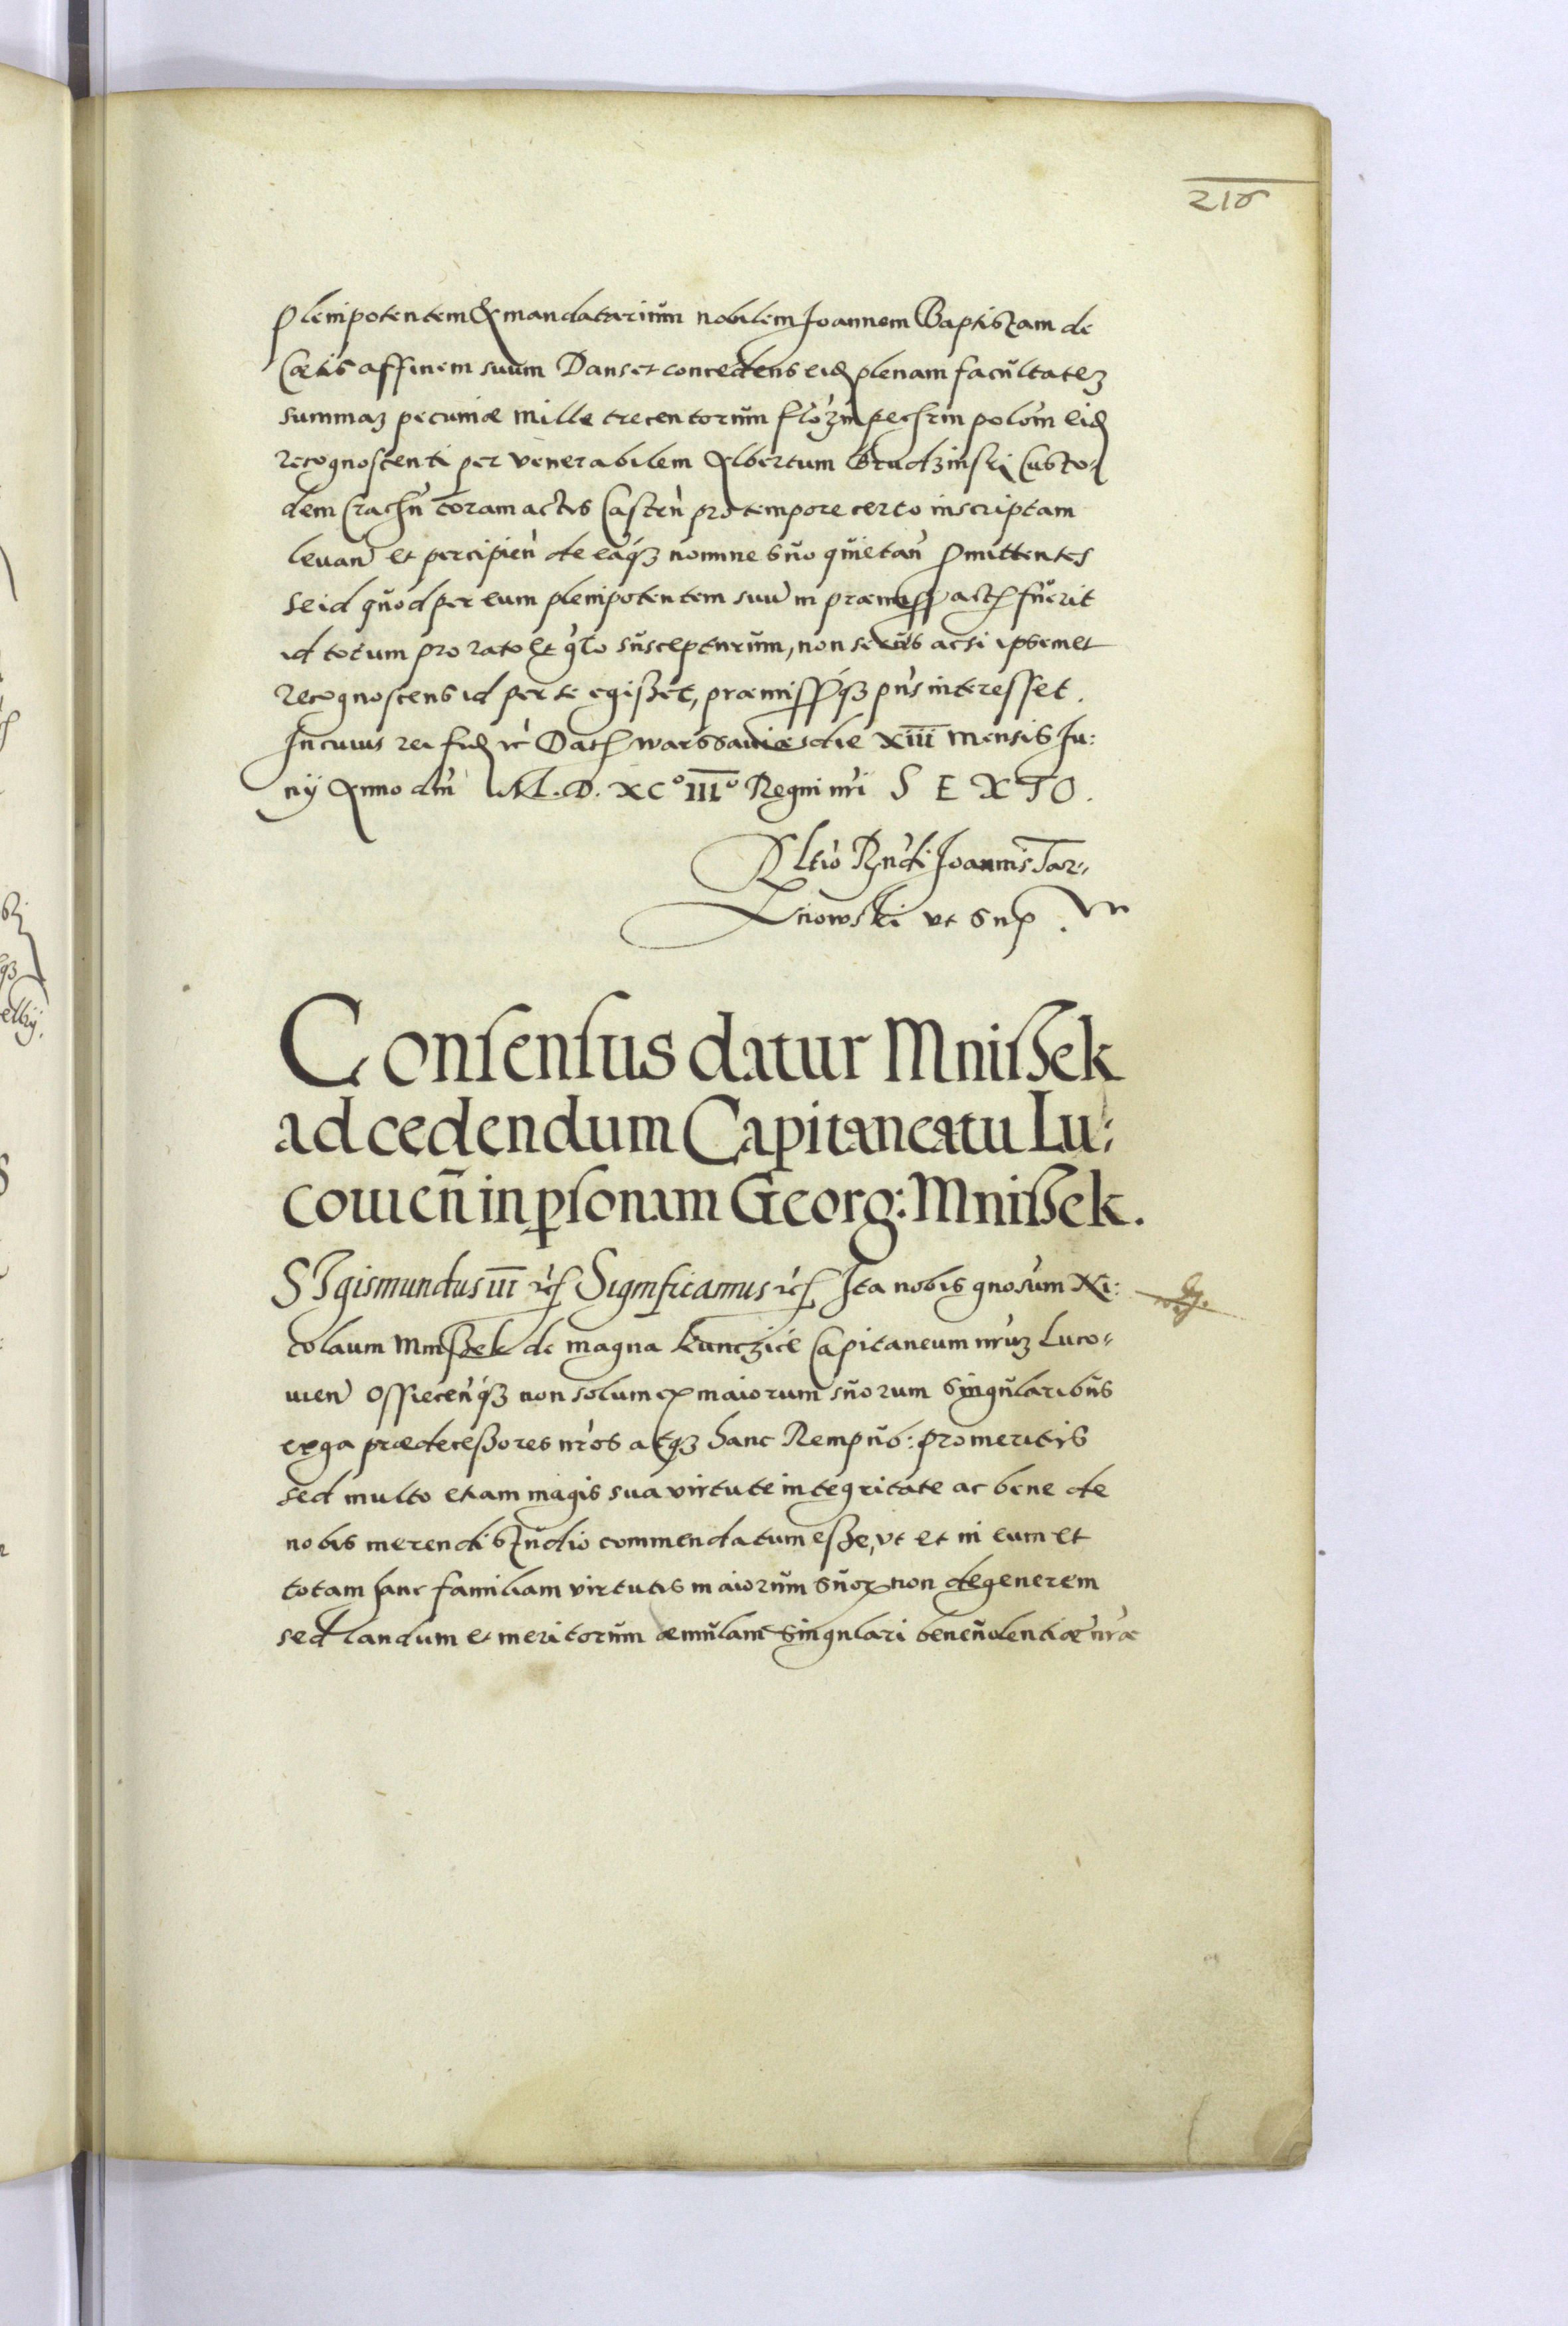 218
Plenipotentem & mandatarium nobilem Joannem Baptistam de
Cæcis affinem suum Dans et concedens eid plenam facultatez
summaz pecuniæ mille trecentorum floẑm pecḥrm̃ polom̃ eid
recognoscenti per venerabilem Albertum Brudzinski Custo-
dem Crachn̄ coram actis Castrn̄ pro tempore certo inscriptam
levan̄ et percipien̄ de eaq3 nomine suo quietan̄ Promittentes
se id quod per eum plenipotentem suum̄ in præmiss act fuerit
id totum pro rato et gr̄to suscepturum, non secus ac si ipsemet
recognoscens id per se egisset, præmissisq3 pn̄s interesset.
In cuius rei fid rc̄ Dat warssaviæ die XIII mensis Ju:
nÿ Anno dn̄i M.D.XC°III° Regni nr̄i SEXTO.
Rltio Rn̄di Joannis Tar-
nowski vt sup.
Consensus datur Mnissek
ad cedendum Capitaneatu Lu:
couien̄ in psonam Georg: Mnissek.
SIgismundus III rc̄ Significamus rc̄ Ita nobis gnosum Ni:
colaum Mnissek de magna kunczice Capitaneum nr̄uz Luco-
vien̄ Ossiecen̄q3 non solum ex maiorum suorum singularibus
erga prædecessores nr̄os atq3 hanc Rempub: promeritis
sed multo etiam magis sua virtute integritate ac bene de
nobis merendi studio commendatum esse, vt et in eum et
totam hanc familiam virtutis maiorum suor non degenerem
sed laudum et meritorum æmulam singulari beneuolentiæ nr̄æ